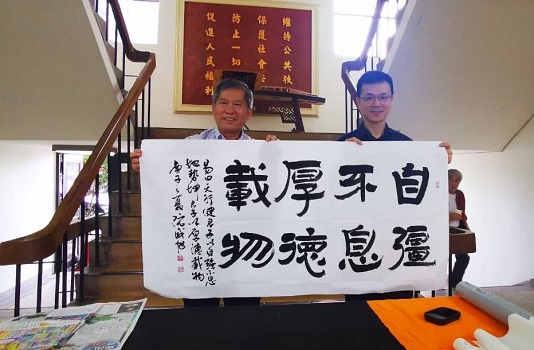 維持公共秩
保護社會
防止一切
促進人民福利
自彊
不息
厚德
載物
易曰天行健君子以自強不息
地勢坤君子以厚德載物
庚子之夏